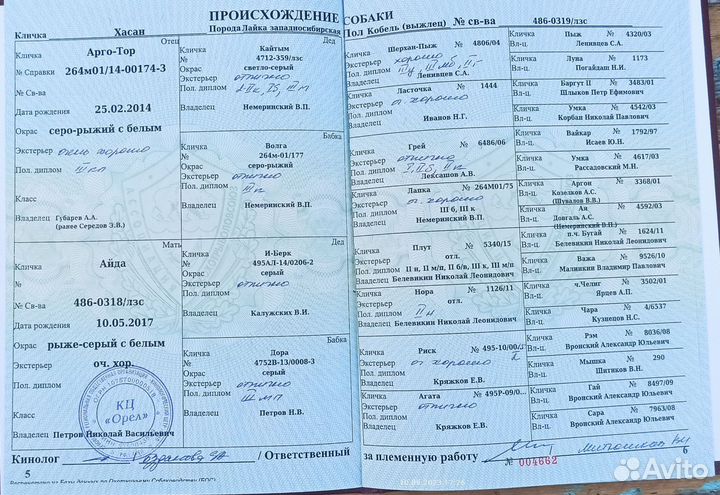 ПРОИСХОЖДЕНИЕ СОБАКИ
Кличка Хасан Порода Лайка западносибирская Пол Кобель (выжлец) № св-ва 486-0319/лзс
Отец
Кличка
Арго-Тор
№ Справки 264м01/14-00174-3
№ Св-ва
Дата рождения 25.02.2014
Окрас
серо-рыжий с белым
Экстерьер очень хорошо
Пол. диплом
Класс
Владелец Губарев А.А.
(ранее Середов Э.В.)
Мать
Кличка
Айда
№ Св-ва
486-0318/лзс
Дата рождения 10.05.2017
Окрас
рыже-серый с белым
Экстерьер
оч. хор.
Пол. диплом
Класс
Владелец Петров Николай Васильевич
Дед
Кличка Кайтым
№ 4712-359/лзс
Окрас светло-серый
Экстерьер отлично
Пол. диплом
Владелец Немеринский В.П.
Бабка
Кличка Волга
№ 264м-01/177
Окрас серо-рыжий
Экстерьер отлично
Пол. диплом
Владелец Немеринский В.П.
Дед
Кличка И-Берк
№ 495АЛ-14/0206-2
Окрас серый
Экстерьер
Пол. диплом
Владелец Калужских В.И.
Бабка
Кличка Дора
№ 4752В-13/0008-3
Окрас серый
Экстерьер отлично
Пол. диплом III мп
Владелец Петров Н.В.
Кличка Шерхан-Пыж № 4806/04
Экстерьер хорошо
Пол. диплом
Владелец Ленивцев С.А.
Кличка Ласточка № 1444
Экстерьер о. хорошо
Пол. диплом
Владелец Иванов Н.Г.
Кличка Грей № 6486/06
Экстерьер отлично
Пол. диплом
Владелец Лексашов А.В.
Кличка Лапка № 264М01/75
Экстерьер о. хорошо
Пол. диплом III б, III к
Владелец Немеринский В.П.
Кличка Плут № 5340/15
Экстерьер отл.
Пол. диплом II н, II м/п, II б/в, III к, III м/п
Владелец Белевикин Николай Леонидович
Кличка Нора № 1126/11
Экстерьер отл.
Пол. диплом
Владелец Белевикин Николай Леонидович
Кличка Риск № 495-10/00
Экстерьер о. хорошо
Пол. диплом
Владелец Кряжков Е.В.
Кличка Агата № 495Р-09/0
Экстерьер отлично
Пол. диплом
Владелец Кряжков Е.В.
Кличка Пыж № 4320/03
Вл-ц. Ленивцев С.А.
Кличка Луна № 1173
Вл-ц. Погайдан Н.И.
Кличка Баргут II № 3483/01
Вл-ц. Шлыков Петр Ефимович
Кличка Умка № 4542/03
Вл-ц. Корбан Николай Павлович
Кличка Вайкар № 1792/97
Вл-ц. Исаев Ю.Н.
Кличка Умка № 4617/03
Вл-ц. Рассадовский М.Н.
Кличка Аргон № 3368/01
Вл-ц. Козелков А.С.
(Шувалов В.В.)
Кличка Ая № 4592/03
Вл-ц. Довгаль А.С.
(Немеринский В.П.)
Кличка п.ч. Бугай № 1624/11
Вл-ц. Белевикин Николай Леонидович
Кличка Важа № 9526/10
Вл-ц. Малинкин Владимир Павлович
Кличка ч.Челиг № 3502/01
Вл-ц. Ярцев А.П.
Кличка Чара № 4/6537
Вл-ц. Кузнецов Н.С.
Кличка Рэм № 8036/08
Вл-ц. Вронский Александр Юльевич
Кличка Мышка № 290
Вл-ц. Шитиков В.Н.
Кличка Гай № 8497/09
Вл-ц. Вронский Александр Юльевич
Кличка Сара № 7963/08
Вл-ц. Вронский Александр Юльевич
КЦ
«Орел»
Кинолог / Ответственный за племенную работу
№ 004662
5
6
10.09.2023 17:26
Avito